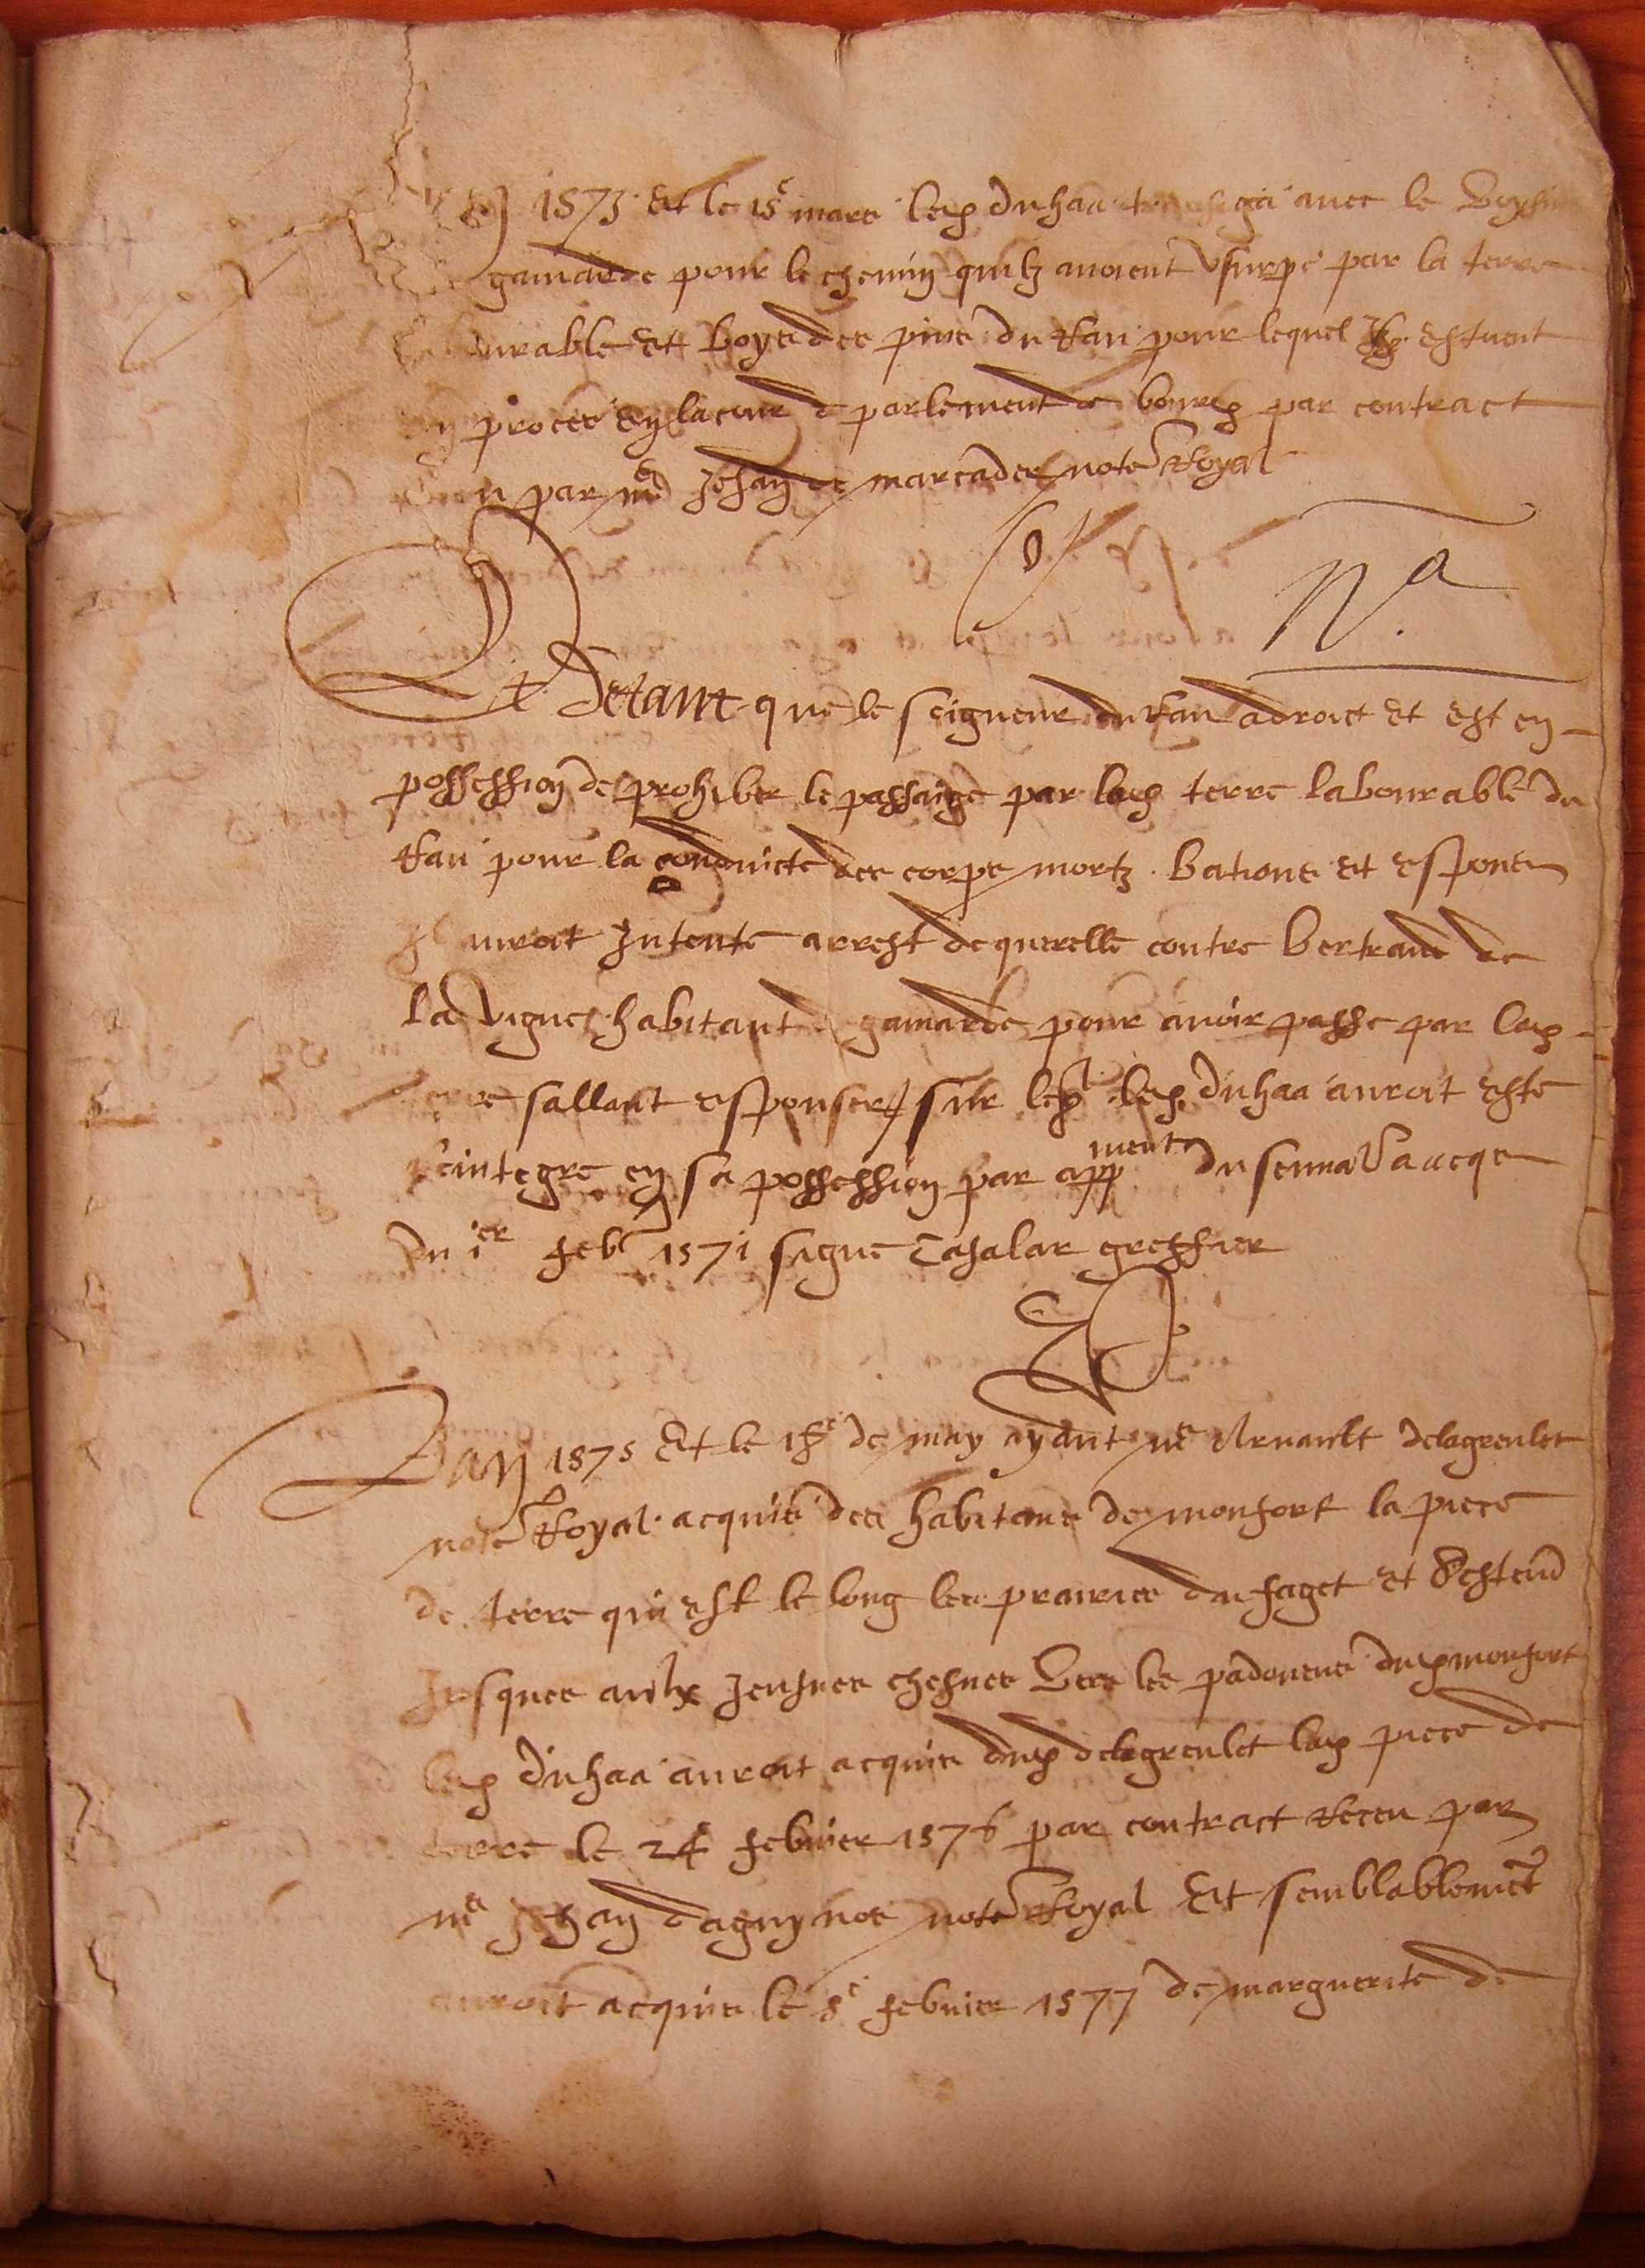 1573 et le 15e mars led duhaa avec le
gamarde pour le chemin quilz avoient usurpé par la terre
et boys des pins du Rau pour lequel ilz estoient
proces en la cour de parlement de bourdx par contract
par me Jehan de marcades note Royal
Na
Et Detant que le seigneur du Rau a droict et est en
possession de prohiber le passaige par lad terre labourable du
Rau pour la conduicte des corps mortz bations et espons
auroit Intenté arrest de querelle contre bertrand de
la vigne habitant de gamarde pour avoir passe par lad
terre sallant espouser sur led duhaa auroit esté
reintegre en sa possession par appment du senna
du ier feb 1571 signé Casalar greffier
Lan 1575 Et le 18e de may ayant me Arnault delagreulet
note Royal acquis des habitans de monfort la piece
de terre qui est le long les prairies du faget et sestend
Jusques aulx Jeusnes chesnes vers les padouens dud monfort
led duhaa auroit acquis dud delagreulet lad piece de
terre le 24 febvrier 1576 par contract Receu par
me Jehan daguynos note Royal Et semblablement
auroit acquis le 8e febvrier 1577 de marguerite de